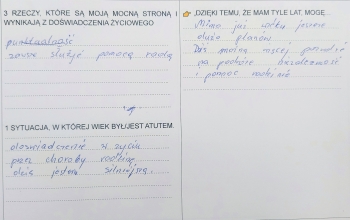 3 RZECZY, KTÓRE SĄ MOJĄ MOCNĄ STRONĄ I
WYNIKAJĄ Z DOŚWIADCZENIA ŻYCIOWEGO
punktualność
zawsze służę pomocą radą
1 SYTUACJA, W KTÓREJ WIEK BYŁ/JEST ATUTEM.
doświadczenie w życiu
przez choroby rodzinne
dziś jestem silniejszą
„DZIĘKI TEMU, ŻE MAM TYLE LAT, MOGĘ...
Mimo już wieku jeszcze
dużo planów
Dziś można więcej pozwolić
na podróże
i pomoc rodzinie